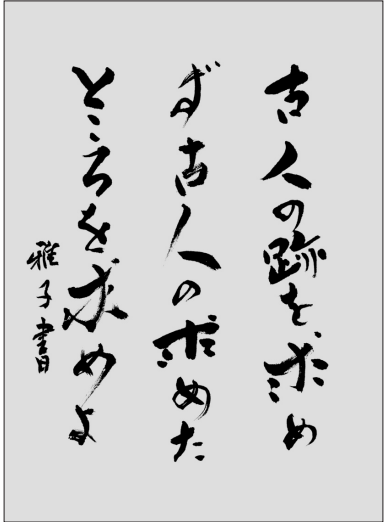 古人の跡を求め
ず古人の求めた
ところを求めよ
雅子書